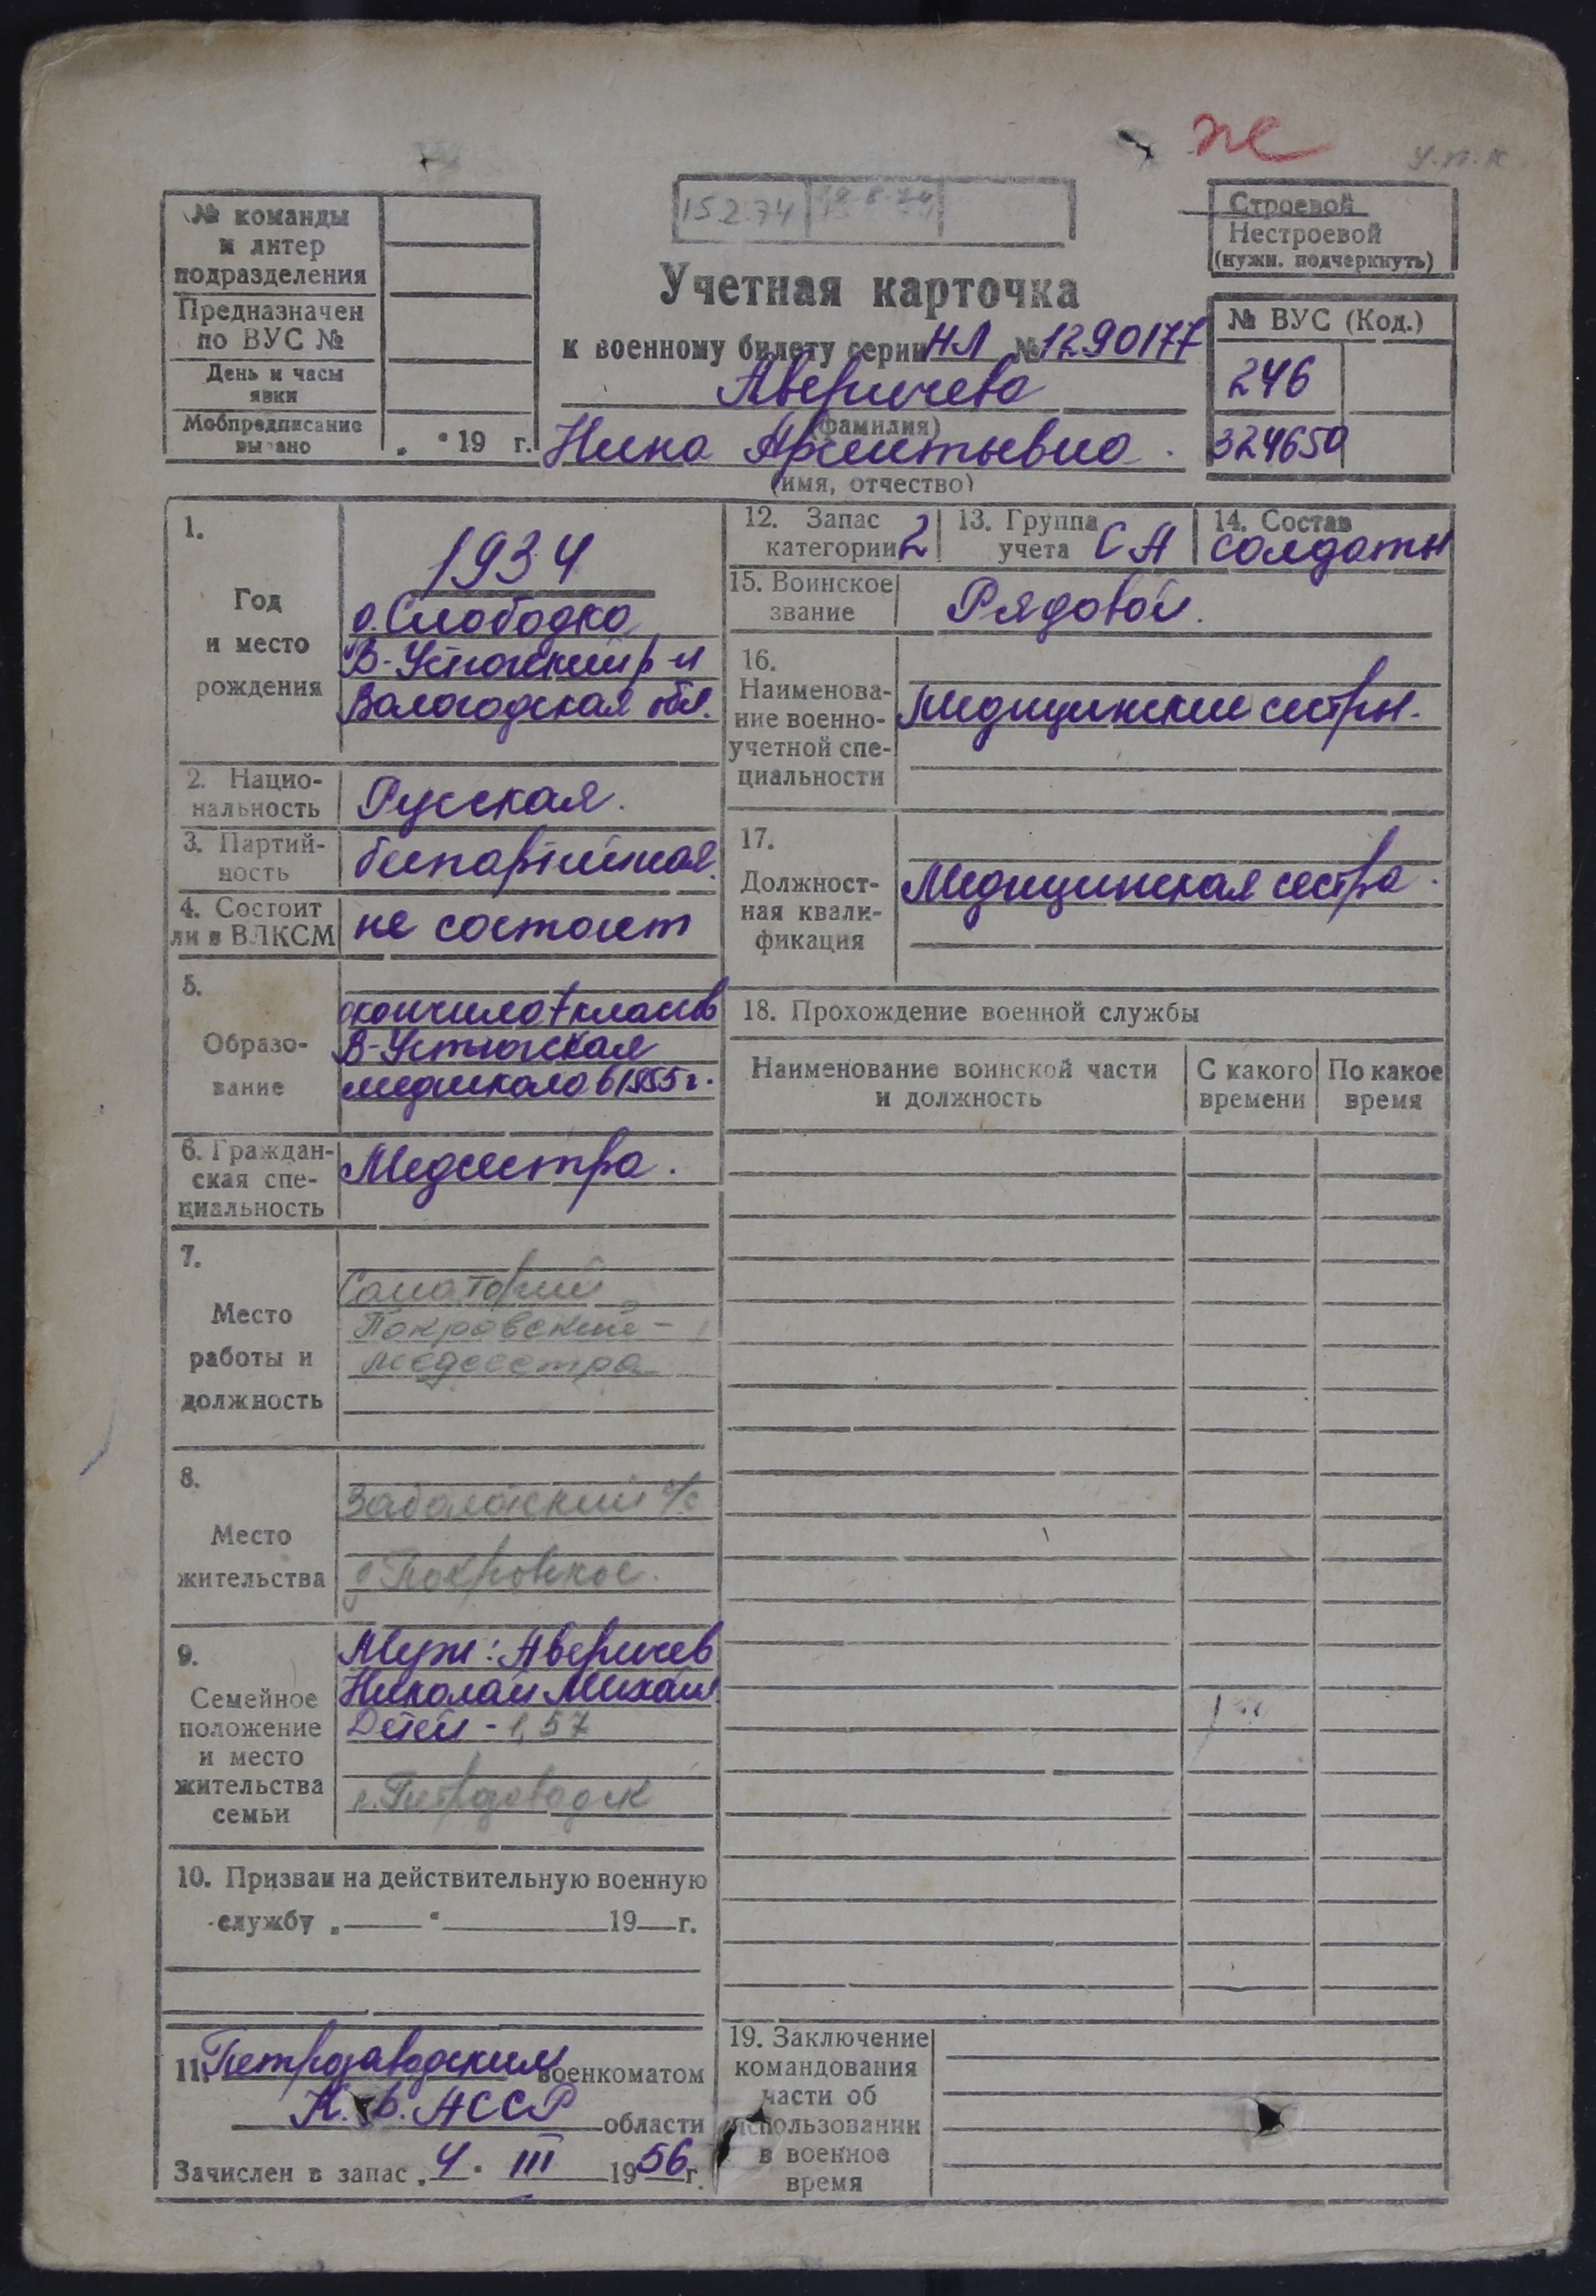 же
у.п.к
15.2.74
19.8.74
№ команды
и литер
подразделения
Предназначен
по ВУС №
День и часы
явки
Мобпредписание
выдано „ “ 19 г.
Строевой
Нестроевой
(нужн. подчеркнуть)
Учетная карточка
к военному билету серии НЛ № 1290177
Аверичева
(фамилия)
Нина Арсентьевна.
(имя, отчество)
№ ВУС (Код.)
246
324650
1.
Год
и место
рождения
1934
д. Слободка
В-Устюгский р-н
Вологодская обл.
2. Нацио-
нальность
Русская.
3. Партий-
ность
беспартийная.
4. Состоит
ли в ВЛКСМ
не состоит
5.
Образо-
вание
окончила 7 классов
В-Устюгская
медшкола в 1955 г.
6. Граждан-
ская спе-
циальность
Медсестра.
7.
Место
работы и
должность
Санаторий
Покровский -
медсестра
8.
Место
жительства
с/с
д Покровское.
9.
Семейное
положение
и место
жительства
семьи
Муж: Аверичев
Николай Михайл
Детей - 1, 57
г. Петрозаводск
10. Призван на действительную военную
службу „ — “ — 19 — г.
11. Петрозаводским военкоматом
К. Ф. АССР области
Зачислен в запас „ 4. III 1956 г.
12. Запас
категории 2
13. Группа
учета СА
14. Состав
солдаты
15. Воинское
звание
Рядовой.
16.
Наименова-
ние военно-
учетной спе-
циальности
Медицинские сестры.
17.
Должност-
ная квали-
фикация
Медицинская сестра.
18. Прохождение военной службы
Наименование воинской части
и должность
С какого
времени
По какое
время
19. Заключение
командования
части об
использовании
в военное
время